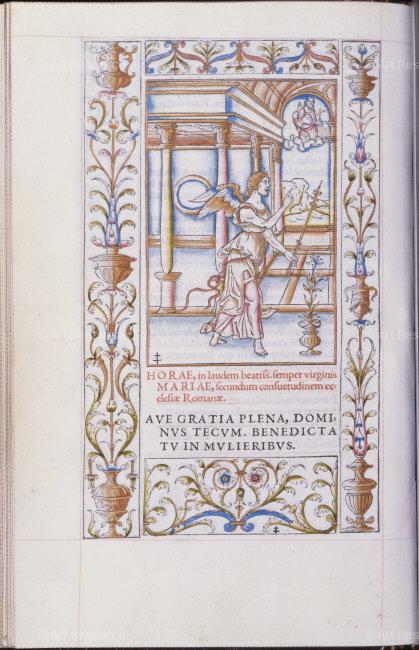 HORAE, in laudem beatiss. semper virginis
MARIAE, secundum consuetudinem ec-
clesiæ Romanæ.
AVE GRATIA PLENA, DOMI-
NVS TECVM. BENEDICTA
TV IN MVLIERIBVS.